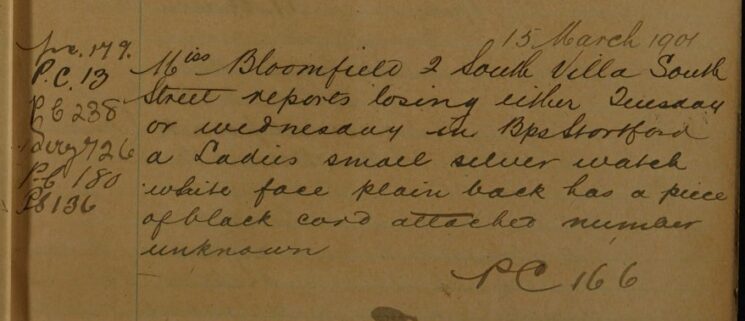 15 March 1901
P.C. 179.
P.C. 13
P.C 238
Serg 726
P.C 180
PC 136
Miss Bloomfield 2 South Villa South
Street reports losing either Tuesday
or wednesday in BpsStortford
a Ladies small silver watch
white face plain back has a piece
of black cord attached number
unknown
PC 166